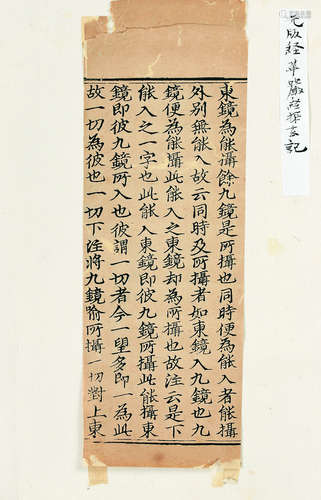 東鏡為能攝餘九鏡是所攝也同時便為能入者能攝
外別無能入故云同時及所攝者如東鏡入九鏡也九
鏡便為能攝此能入之東鏡却為所攝也故注云是下
能入之一字也此能入東鏡即彼九鏡所攝此能攝東
鏡即彼九鏡所入也彼謂一切者今一望多即一為此
故一切為彼也一切下注將九鏡喻所攝一切對上東
元版経 華厳経探玄記